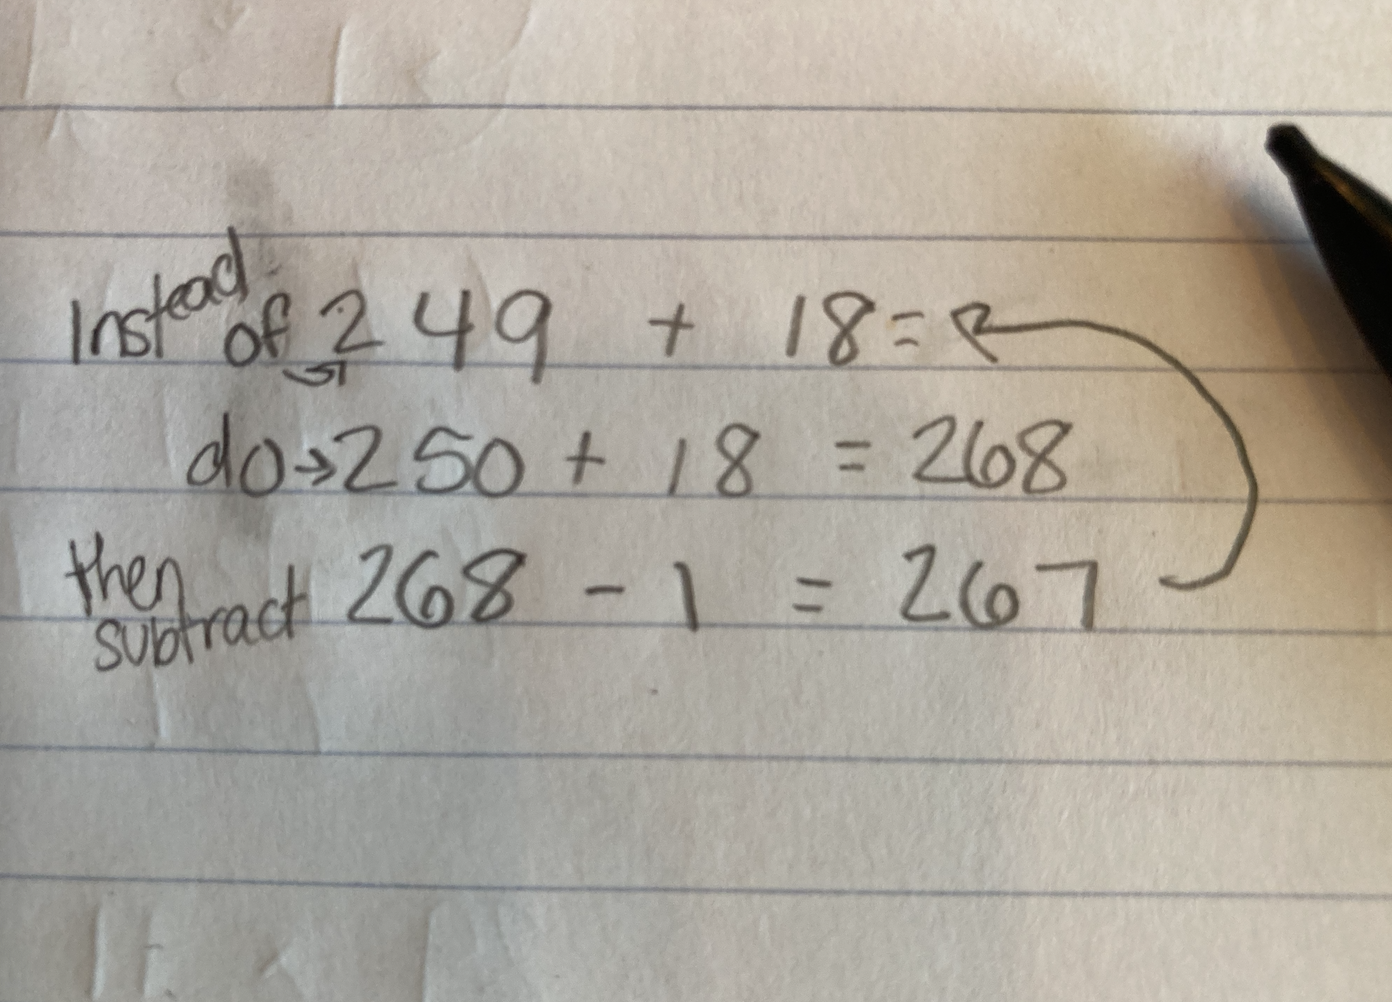 Instead of 249 + 18 =
do → 250 + 18 = 268
then subtract 268 - 1 = 267